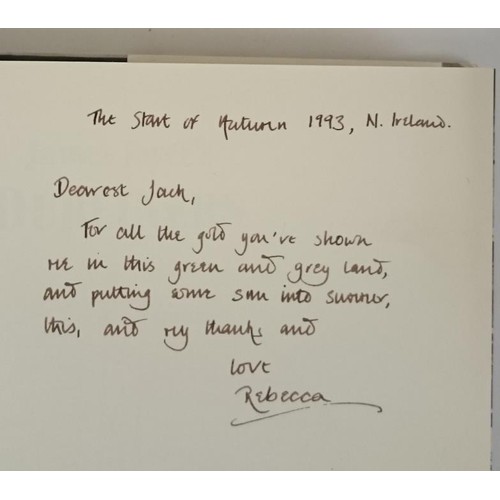 The Start of Autumn 1993, N. Ireland.
Dearest Jack,
For all the gold you've shown
me in this green and grey land,
and putting some sun into summer,
this, and my thanks and
love
Rebecca